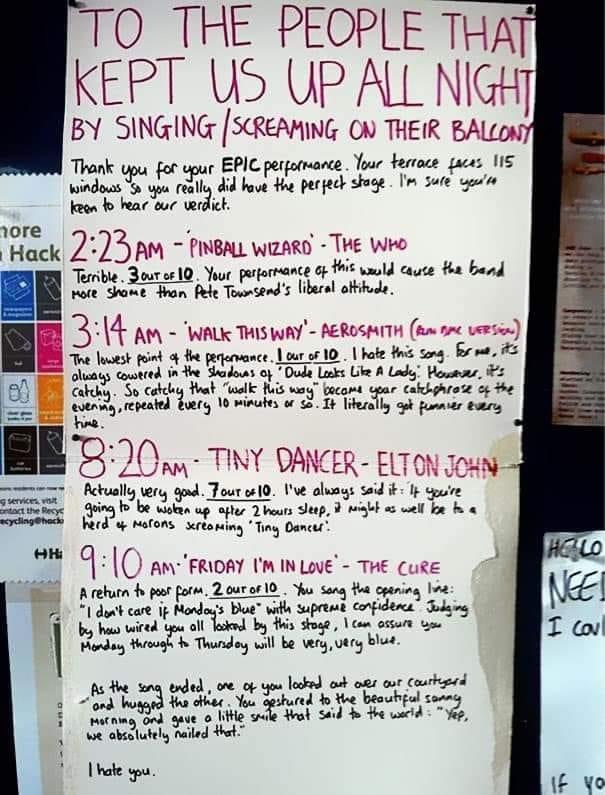 TO THE PEOPLE THAT
KEPT US UP ALL NIGHT
BY SINGING/SCREAMING ON THEIR BALCONY
Thank you for your EPIC performance. Your terrace faces 115
windows so you really did have the perfect stage. I'm sure you're
keen to hear our verdict.
2:23AM - 'PINBALL WIZARD' - THE WHO
Terrible. 3 OUT OF 10. Your performance of this would cause the band
more shame than Pete Townsend's liberal attitude.
3:14 AM - 'WALK THIS WAY' - AEROSMITH (RUN DMC VERSION)
The lowest point of the performance. 1 out of 10. I hate this song. For me, it's
always cowered in the shadows of 'Dude Looks Like A Lady'. However, it's
catchy. So catchy that "walk this way" became your catchphrase of the
evening, repeated every 10 minutes or so. It literally got funnier every
time.
8:20AM - TINY DANCER - ELTON JOHN
Actually very good. 7 out of 10. I've always said it: 'If you're
going to be woken up after 2 hours sleep, it might as well be to a
herd of morons screaming 'Tiny Dancer'.
9:10 AM - 'FRIDAY I'M IN LOVE' - THE CURE
A return to poor form. 2 out of 10. You sang the opening line:
"I don't care if Monday's blue" with supreme confidence. Judging
by how wired you all looked by this stage, I can assure you
Monday through to Thursday will be very, very blue.
As the song ended, one of you looked out over our courtyard
and hugged the other. You gestured to the beautiful sunny
morning and gave a little smile that said to the world: "Yep,
we absolutely nailed that."
I hate you.
more
Hack
g services, visit
ontact the Recyc
ecycling@hack
HELLO
NEE
I coul
If yo